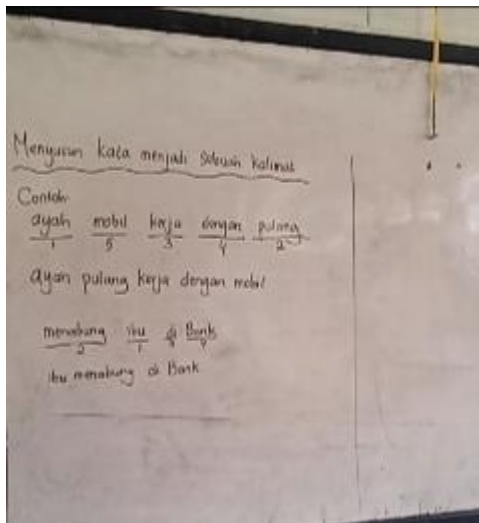 Menyusun kata menjadi sebuah kalimat
Contoh
ayah mobil kerja dengan pulang
1 5 3 4 2
ayah pulang kerja dengan mobil
menabung ibu di Bank
2 1 3 4
ibu menabung di Bank